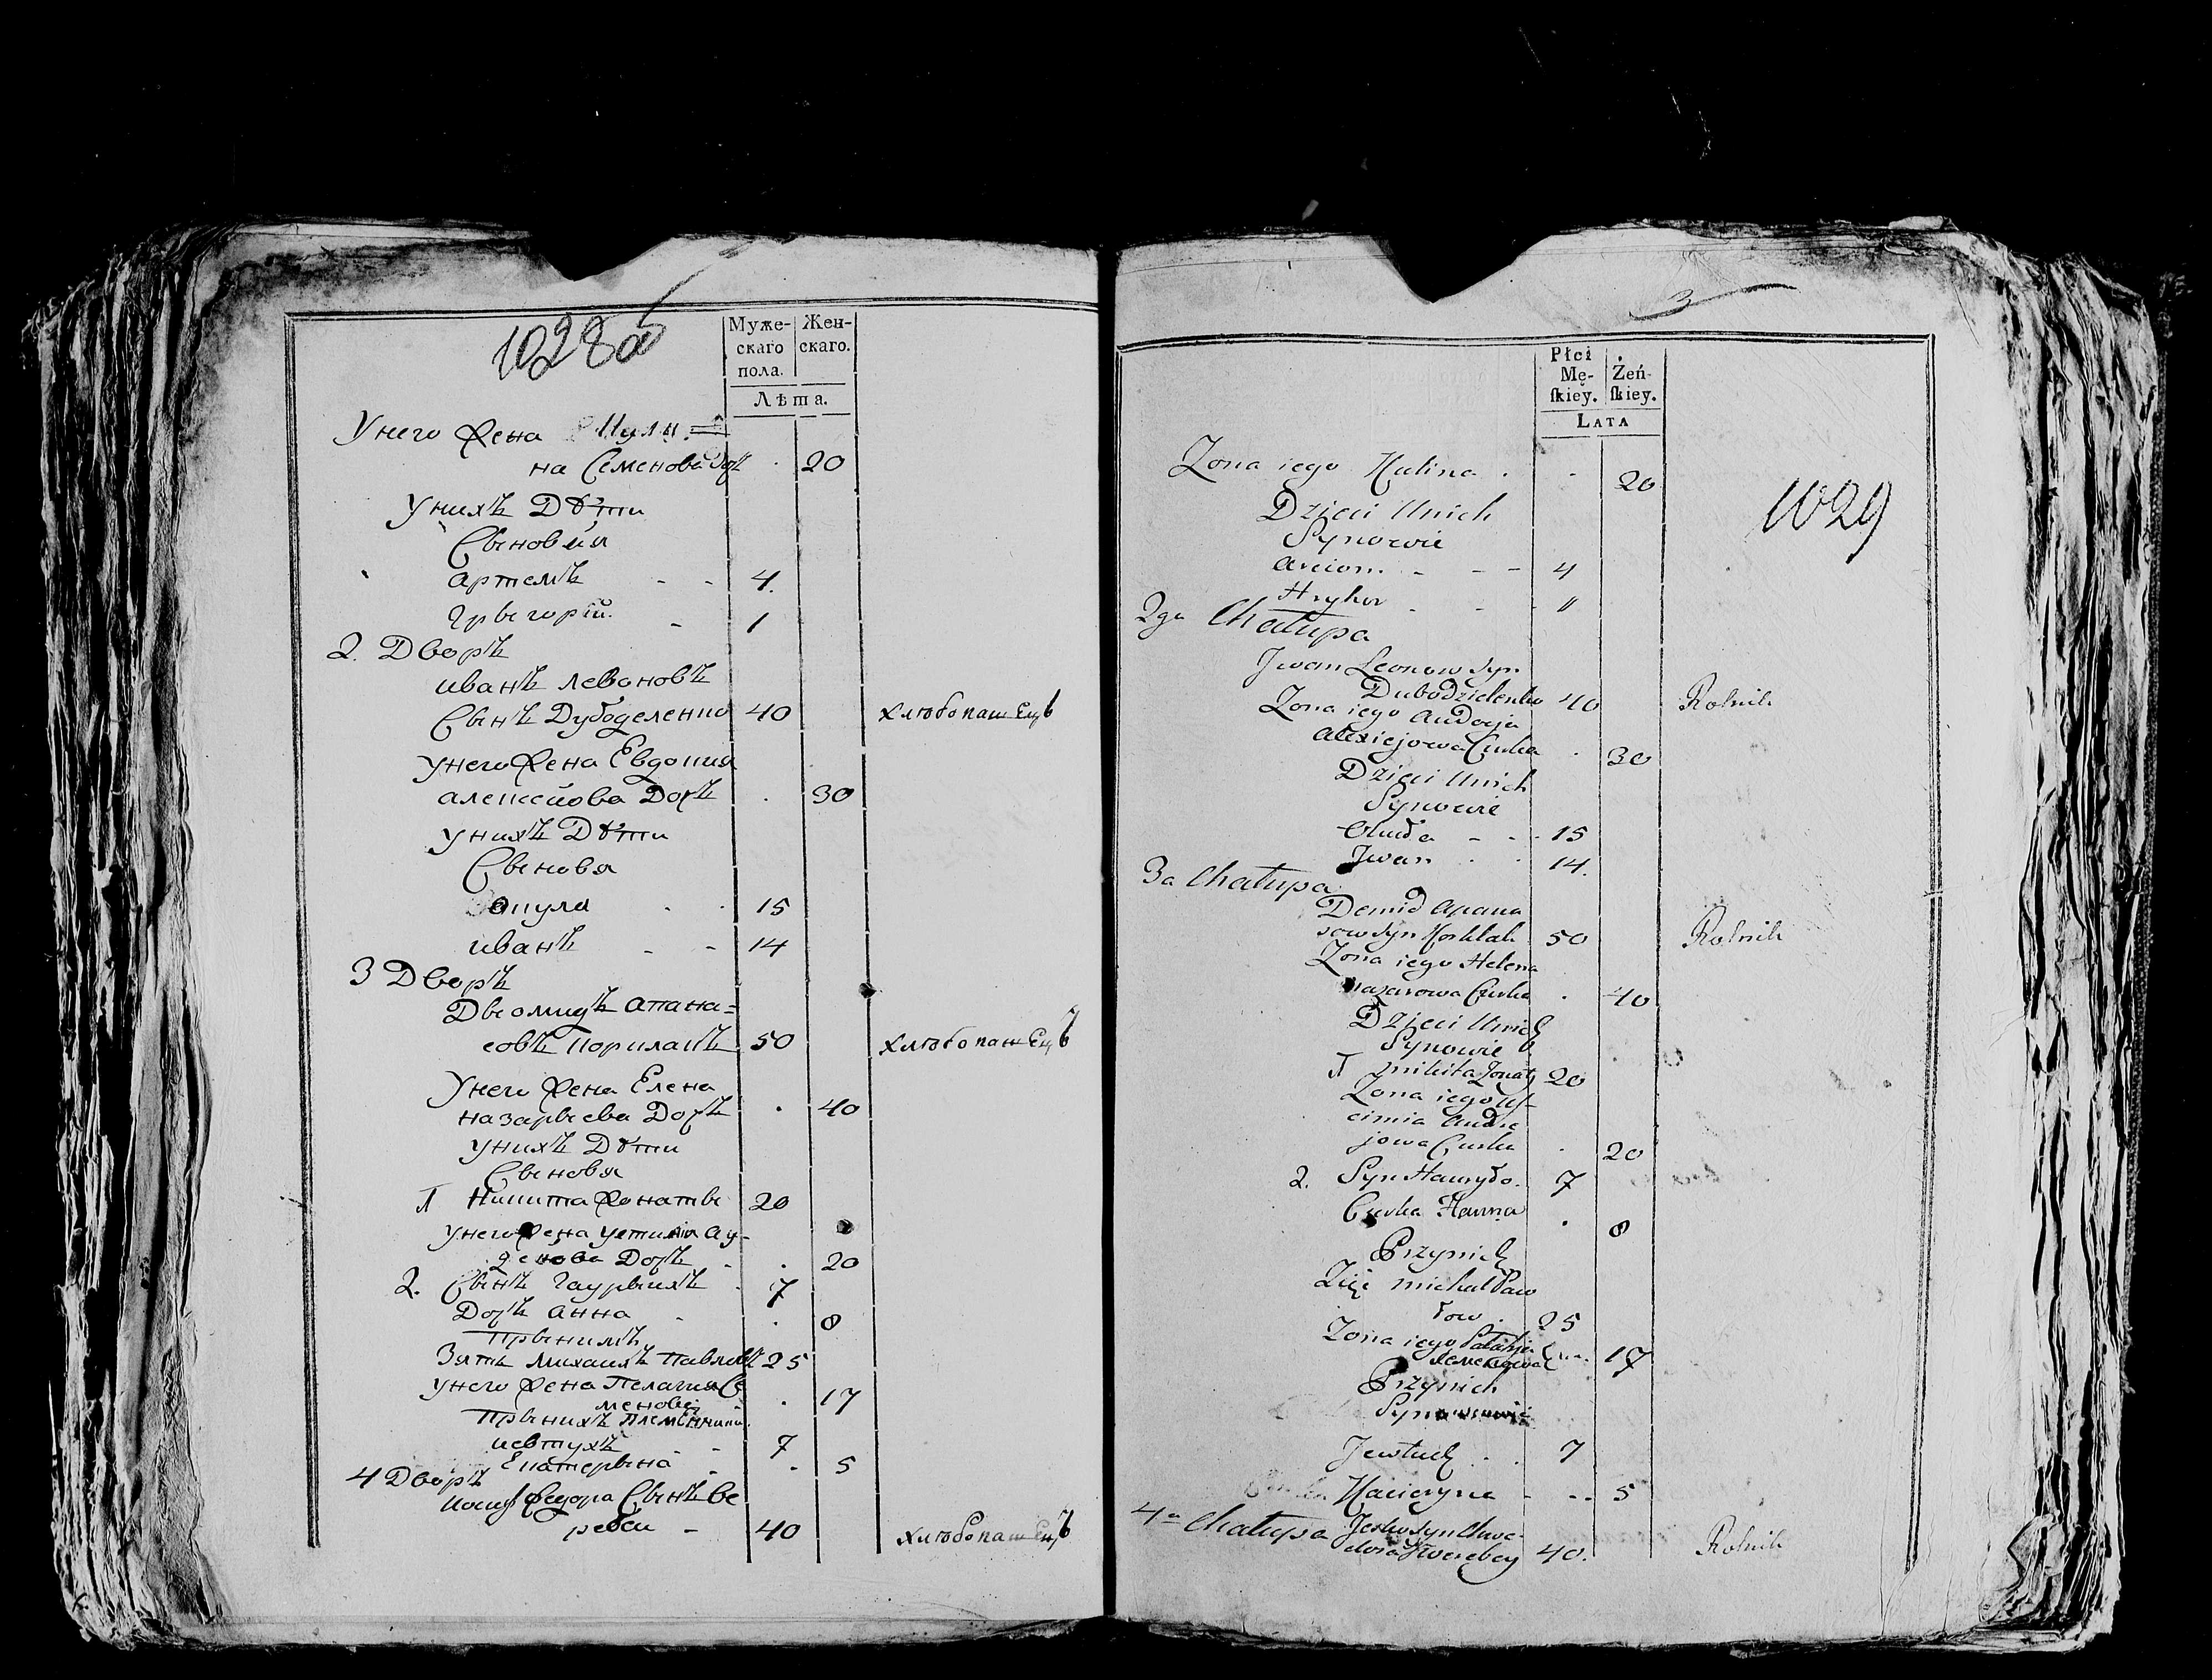 1028об
Муже- Жен-
скаго скаго.
пола.
Лѣта.
У него жена Кули=
на Семенова дочъ . 20
У нихъ Дѣти
Сыновья
Артемъ - - 4.
Грыгорій. - 1
2. Дворъ
Иванъ Левоновъ
Сынъ Дубоделенко 40 хлѣбопашецъ
У него жена Евдокия
Алексеиова Дочъ . 30
У нихъ Дѣти
Сыновя
Иванъ - - 14
15
3 Дворъ
Дыомидъ Апана=
совъ 50 хлѣбопашецъ
У него жена Елена
Назарьева Дочъ . 40
У нихъ Дѣти
Сыновя
1 Никита жонаты 20
У него жена Устимия
Дочъ . 20
2. Сынъ Гаурыихъ . 7
Дочъ Анна . . 8
Пры нимъ
Зять Михаихъ Павловъ 25
У него жена Пелагия Се
менова . 17
Пры нихъ племенники
Иевтухъ - - 7
Екатерына - . 5
4 Дворъ
Федора Сынъ Ве
ребеи - 40 хлѣбопашецъ
3
Płci
Mę- Żeń-
ſkiey. ſkiey.
LATA
1029
Zona iego Kulina . . 20
Dzieci Unich
Synowie
Arciom. - - - 4
Hryhor . - - 11
2ga Chałupa
Jwan Leonow Syn
Dubodzielenko 40 Rolnik
Zona iego Audocja
Alexiejowa Curka . 30
Dzieci Unich
Synowie
- - - 15
Jwan . . 14.
3a Chałupa
Demid Apana
sow Syn 50 Rolnik
Zona iego Helena
Nazarowa Curka . 40
Dzieci Unich
Synowie
1 Mikita Zonaty 20
Zona iego Us-
cimia Audie
jowa Curka . 20
2. Syn Hauryło. 7
Curka Hanna . 8
Przynich
Zięć Michał Paw
łow . 25
Zona iego Pałahja
Semenowa Cur. 17
Przynich
Synowcowie
Jewtuch . . 7
Kacieryna - - - 5
4a Chałupa Jesko Syn Chwe-
dora Werebey 40. Rolnik